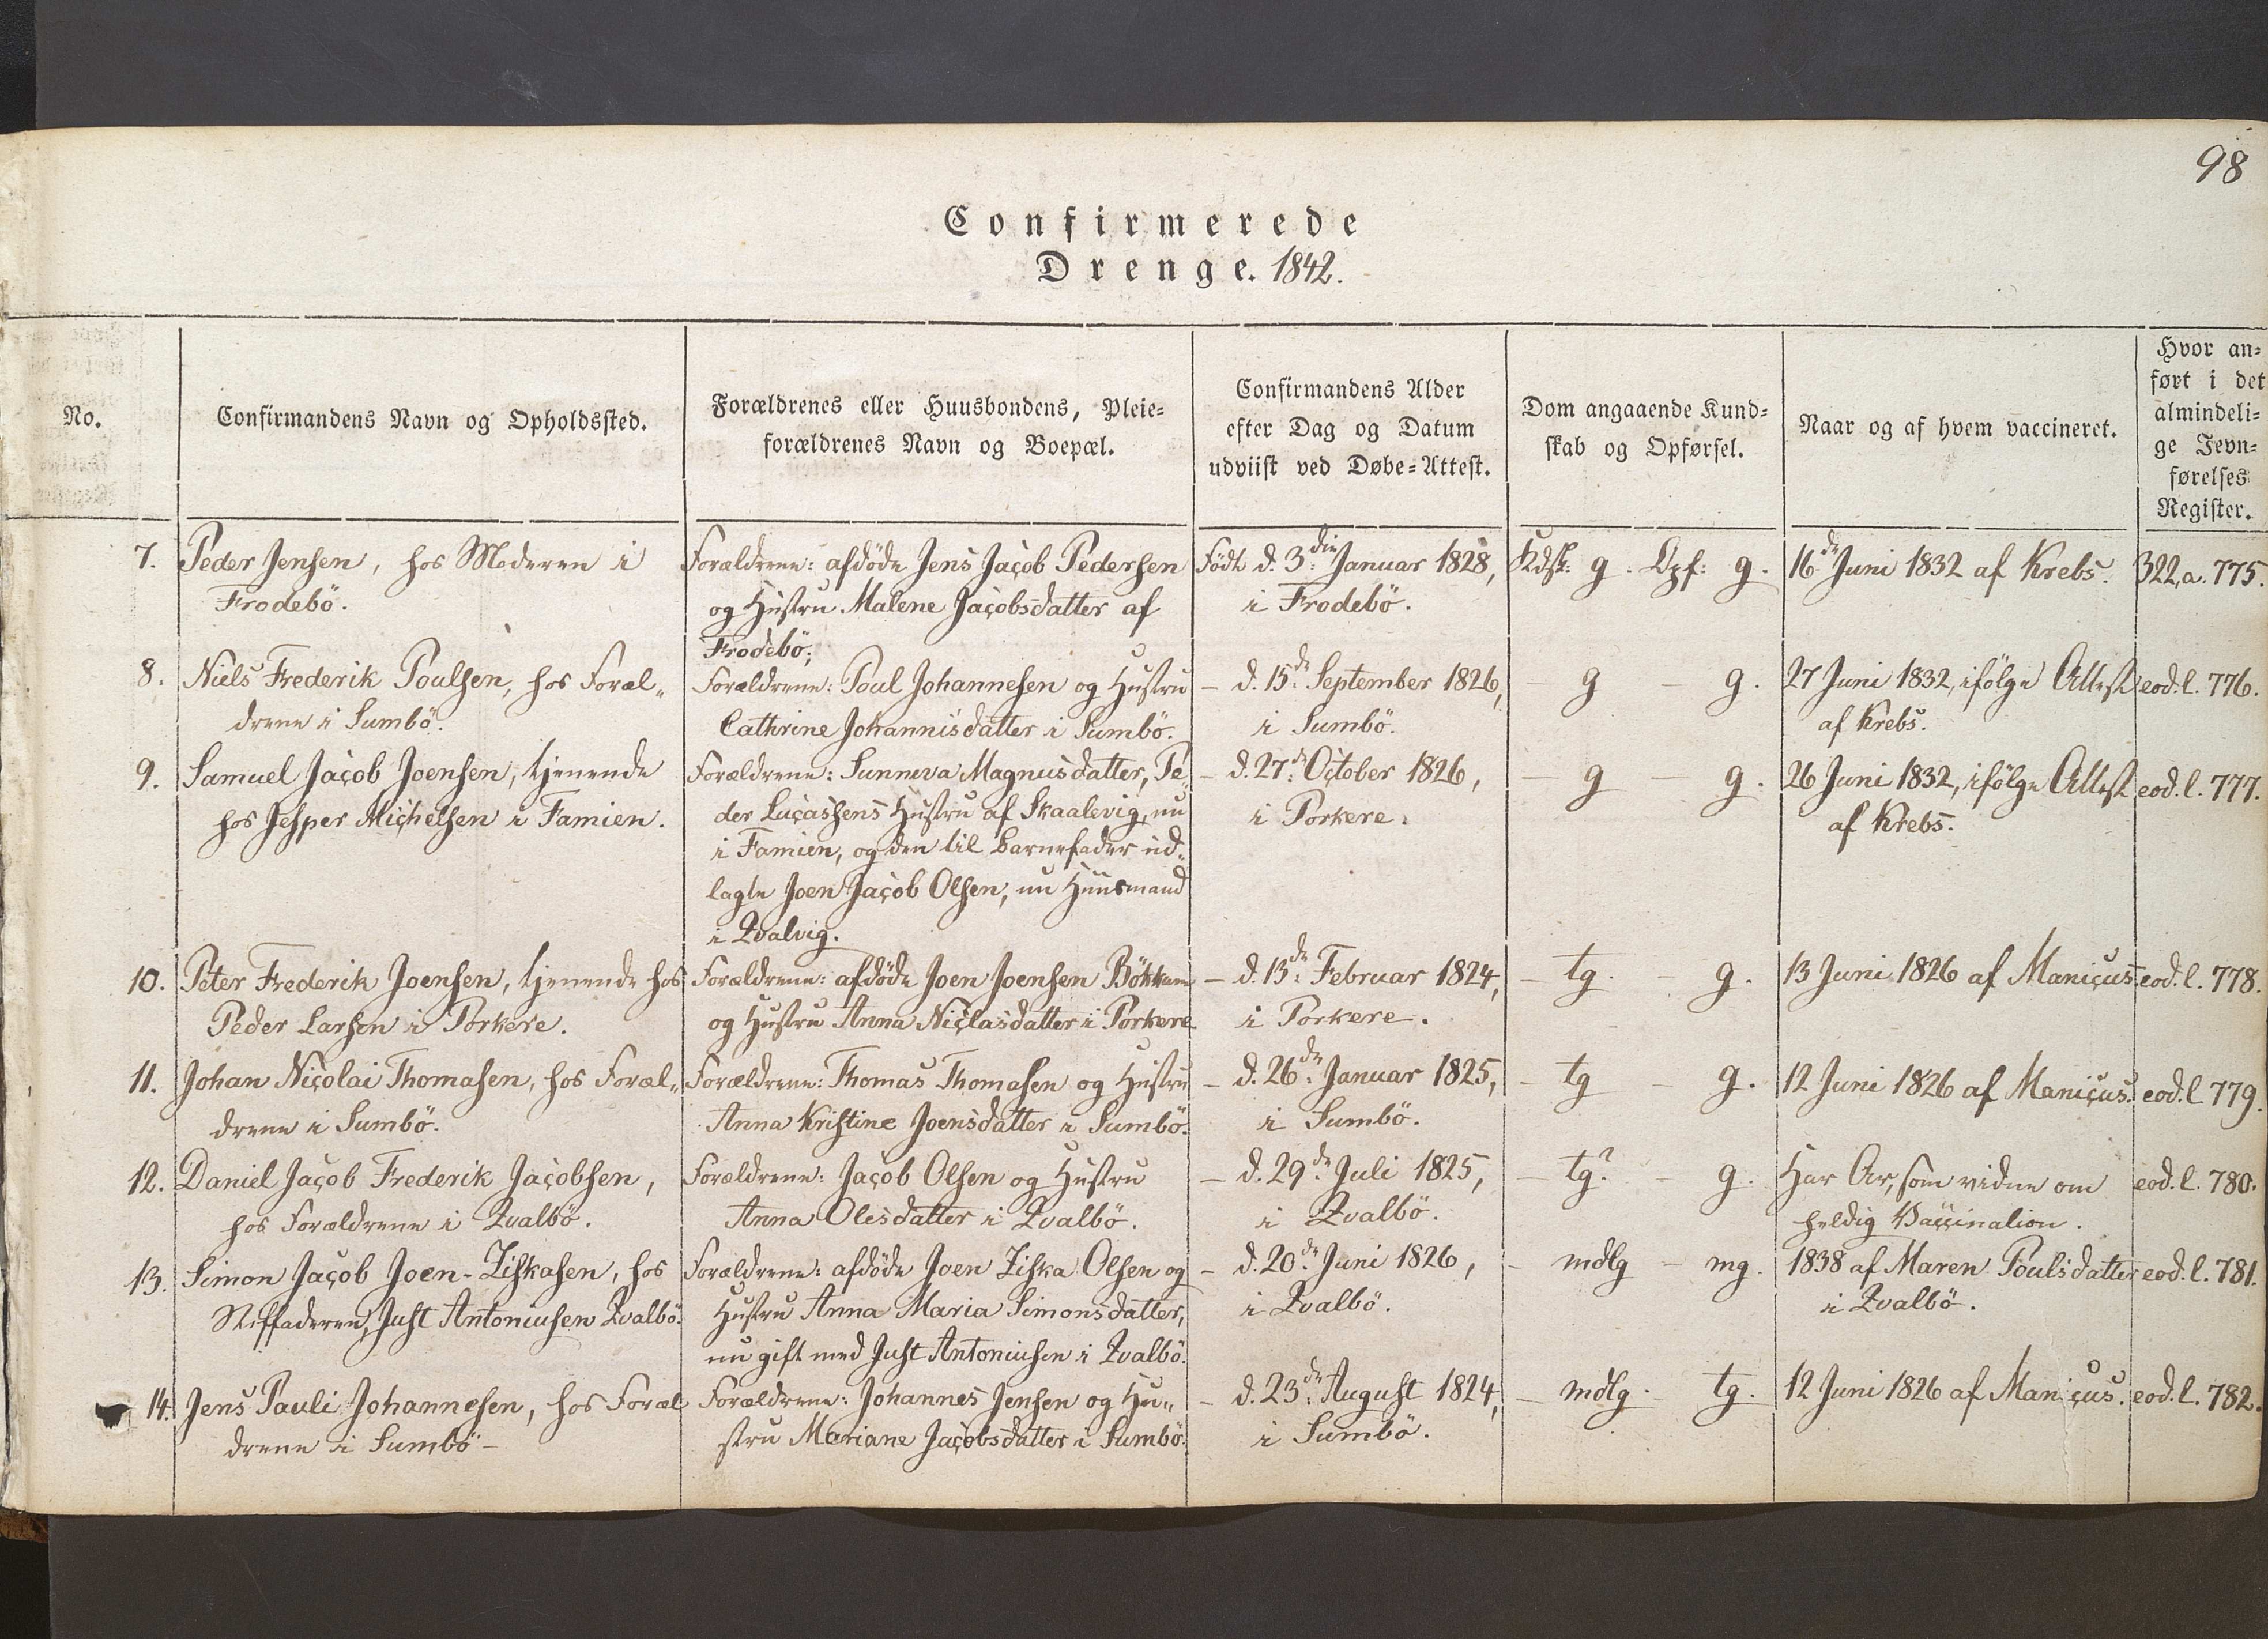 98
Confirmerede
Drenge. 1842.
No.
Confirmandens Navn og Opholdssted.
Forældrenes eller Huusbondens, Pleie-
forældrenes Navn og Boepæl.
Confirmandens Alder
efter Dag og Datum
udviist ved Døbe-Attest.
Dom angaaende Kund-
skab og Opførsel.
Naar og af hvem vaccineret.
Hvor an-
ført i det
almindeli-
ge Jevn-
førelses
Register.
7.
Peder Jensen, hos Moderen i
Frodebö.
Forældrene: afdöde Jens Jacob Pedersen
og Hustru Malene Jacobsdatter af
Frodebö;
Födt d. 3die Januar 1828,
i Frodebö.
Kdsk: g. Opf: g.
16de Juni 1832 af Krebs.
322, a. 775.
8.
Niels Frederik Poulsen, hos Foræl-
drene i Sumbö.
Forældrene: Poul Johannesen og Hustru
Cathrine Johannisdatter i Sumbö.
– d. 15de September 1826,
i Sumbö.
– g – g.
27 Juni 1832, ifölge Attest
af Krebs.
eod. l. 776.
9.
Samuel Jacob Joensen, tjenende
hos Jesper Michelsen i Famien.
Forældrene: Sunneva Magnusdatter, Pe-
der Lucassens Hustru af Skaalevig, nu
i Famien, og den til Barnefader ud-
lagte Joen Jacob Olsen, nu Huusmand
i Qvalvig.
– d. 27de October 1826,
i Porkere.
– g – g.
26 Juni 1832, ifölge Attest
af Krebs.
eod. l. 777.
10.
Peter Frederik Joensen, tjenende hos
Peder Larsen i Porkere.
Forældrene: afdöde Joen Joensen
og Hustru Anna Niclasdatter i Porkere
– d. 13de Februar 1824,
i Porkere.
– tg. – g.
13 Juni 1826 af Manicus.
eod. l. 778.
11.
Johan Nicolai Thomasen, hos Foræl-
drene i Sumbö.
Forældrene: Thomas Thomasen og Hustru
Anna Kristine Joensdatter i Sumbö.
– d. 26de Januar 1825,
i Sumbö.
– tg – g.
12 Juni 1826 af Manicus.
eod. l. 779.
12.
Daniel Jacob Frederik Jacobsen,
hos Forældrene i Qvalbö.
Forældrene: Jacob Olsen og Hustru
Anna Olesdatter i Qvalbö.
– d. 29de Juli 1825,
i Qvalbö.
– tg? – g.
Har Ar, som vidne om
heldig Vaccination.
eod. l. 780.
13.
Simon Jacob Joen-Ziskasen, hos
Stiffaderen, Just Antoniusen Qvalbö.
Forældrene: afdöde Joen Ziska Olsen og
Hustru Anna Maria Simonsdatter,
nu gift med Just Antoniusen i Qvalbö.
– d. 20de Juni 1826,
i Qvalbö.
– mdlg – mg.
1838 af Maren Poulsdatter
i Qvalbö.
eod. l. 781.
14.
Jens Pauli Johannesen, hos Foræl
drene i Sumbö –
Forældrene: Johannes Jensen og Hu-
stru Mariane Jacobsdatter i Sumbö.
– d. 23de August 1824,
i Sumbö.
– mdlg. – tg.
12 Juni 1826 af Manicus.
eod. l. 782.